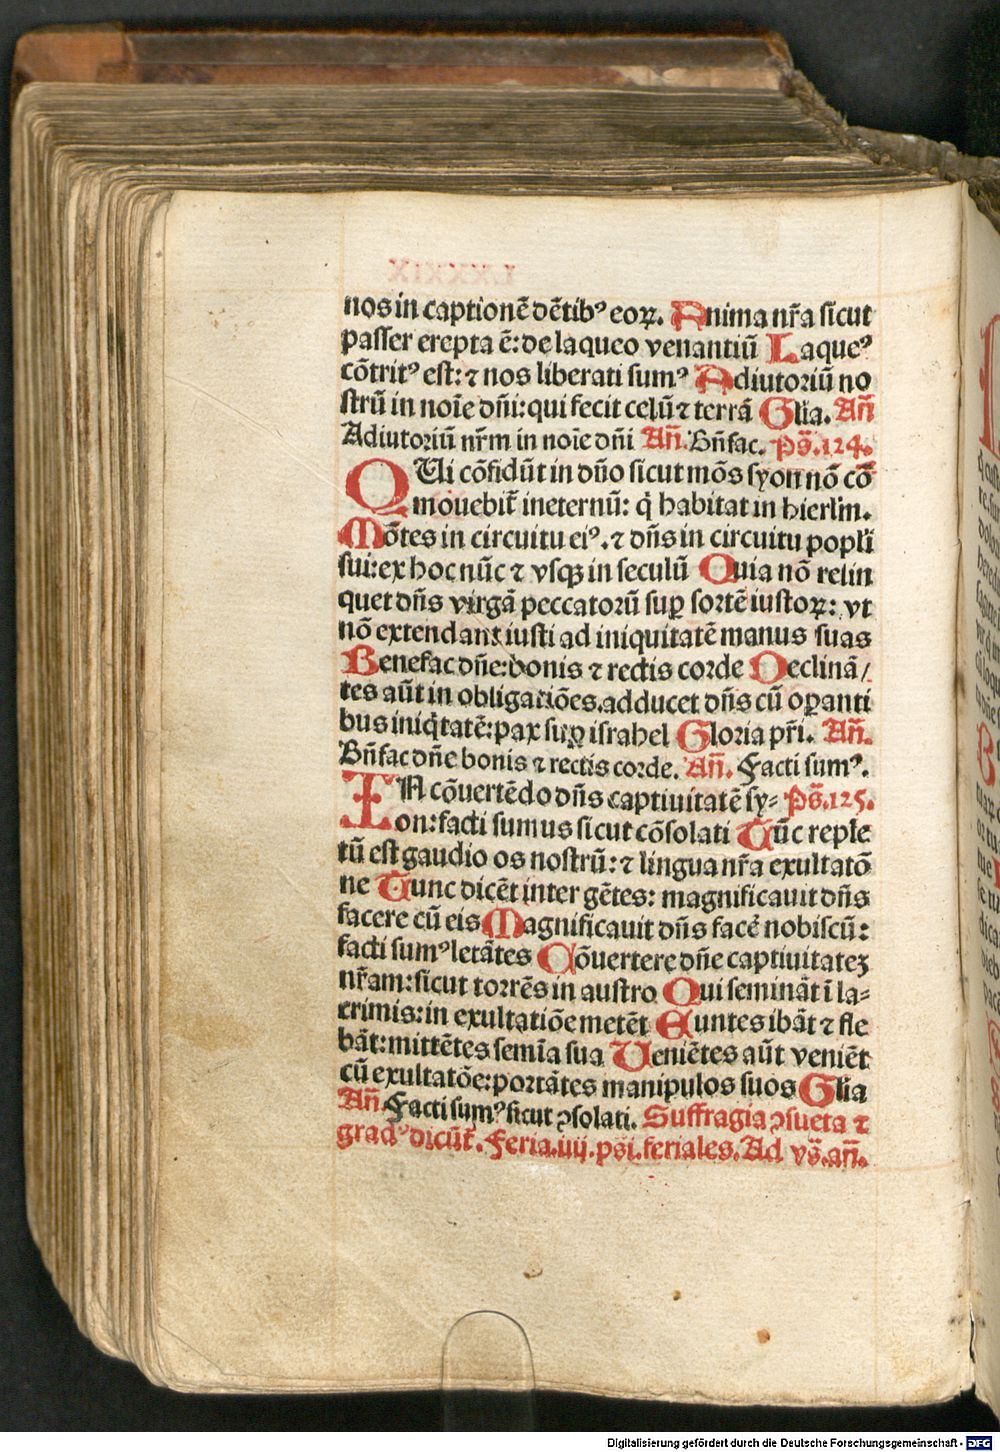 nos in captionē dētibꝰ eoꝝ. Anima nr̃a sicut
passer erepta ē: de laqueo venantiū Laqueꝰ
cōtritꝰ est: ⁊ nos liberati sumꝰ Adiutoriū no
strū in noīe dñi: qui fecit celū ⁊ terrā Glīa. Añ
Adiutoriū nr̃m in noīe dñi Añ. Bñfac. Ps̄. 124.
QUi cōfidūt in dño sicut mōs syon nō cō
mouebit̃ ineternū: q̇ habitat in hierlīm.
Mōtes in circuitu eiꝰ. ⁊ dñs in circuitu popli
sui: ex hoc nūc ⁊ vsqꝫ in seculū Quia nō relin
quet dñs virgā peccatorū suꝑ sortē iustoꝝ: vt
nō extendant iusti ad iniquitatē manus suas
Benefac dñe: bonis ⁊ rectis corde Declinā/
tes aūt in obligatiōes. adducet dñs cū oꝑanti
bus iniq̇tatē: pax suꝑ israhel Gloria pr̃i. Añ.
Bñfac dñe bonis ⁊ rectis corde. Añ. Facti sumꝰ.
IN cōuertēdo dñs captiuitatē sy= Ps̄. 125.
on: facti sumus sicut cōsolati Tūc reple
tū est gaudio os nostrū: ⁊ lingua nr̃a exultatō
ne Tunc dicēt inter gētes: magnificauit dñs
facere cū eis Magnificauit dñs facē nobiscū:
facti sumꝰ letātes Cōuertere dñe captiuitateꝫ
nr̃am: sicut torrēs in austro Qui semināt ī la=
crimis: in exultatiōe metēt Euntes ibāt ⁊ fle
bāt: mittētes semīa sua Ueniētes aūt veniēt
cū exultatōe: portātes manipulos suos Glīa
Añ. Facti sumꝰ sicut ꝯsolati. Suffragia ꝯsueta ⁊
gradꝰ dicūt̃. Feria. iiij. psī. feriales. Ad vs̄. añ.
Digitalisierung gefördert durch die Deutsche Forschungsgemeinschaft - DFG